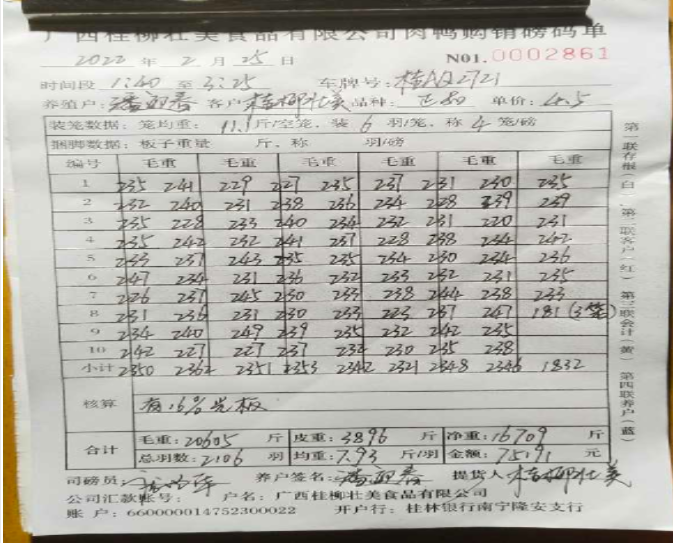 广西桂柳壮美食品有限公司肉鸭购销磅码单
2022 年 2 月 25 日 N01.0002861
时间段 1:40 至 3:25 车牌号:
养殖户: 潘迎春 客户 桂柳壮美 品种: 单价: 4.5
装笼数据: 笼均重: 11.1 斤/空笼、装 6 羽/笼、称 4 笼/磅
捆脚数据: 板子重量 斤、称 羽/磅
编号 毛重 毛重 毛重 毛重 毛重 毛重
1 235 241 229 227 235 237 231 230 235
2 232 240 231 238 236 234 228 239 239
3 235 228 233 240 234 232 231 220 231
4 235 242 232 241 237 228 238 234 242
5 233 237 243 235 235 234 230 234 236
6 247 234 231 236 232 233 232 231 235
7 226 237 245 230 233 238 244 238 233
8 231 236 231 230 233 223 237 247 181 (3笼)
9 234 240 249 239 235 232 242 235
10 242 227 227 237 232 230 235 238
小计 2350 2362 2351 2353 2342 2321 2348 2346 1832
核算 有16%光板
合计 毛重: 20605 斤 皮重: 3896 斤 净重: 16709 斤
总羽数: 2106 羽 均重: 7.93 斤/羽 金额: 75191 元
司磅员: 养户签名: 潘迎春 提货人: 桂柳壮美
公司汇款账号: 户名: 广西桂柳壮美食品有限公司
账 户: 660000014752300022 开户行: 桂林银行南宁隆安支行
第一联存根(白) 第二联客户(红) 第三联会计(黄) 第四联养户(蓝)